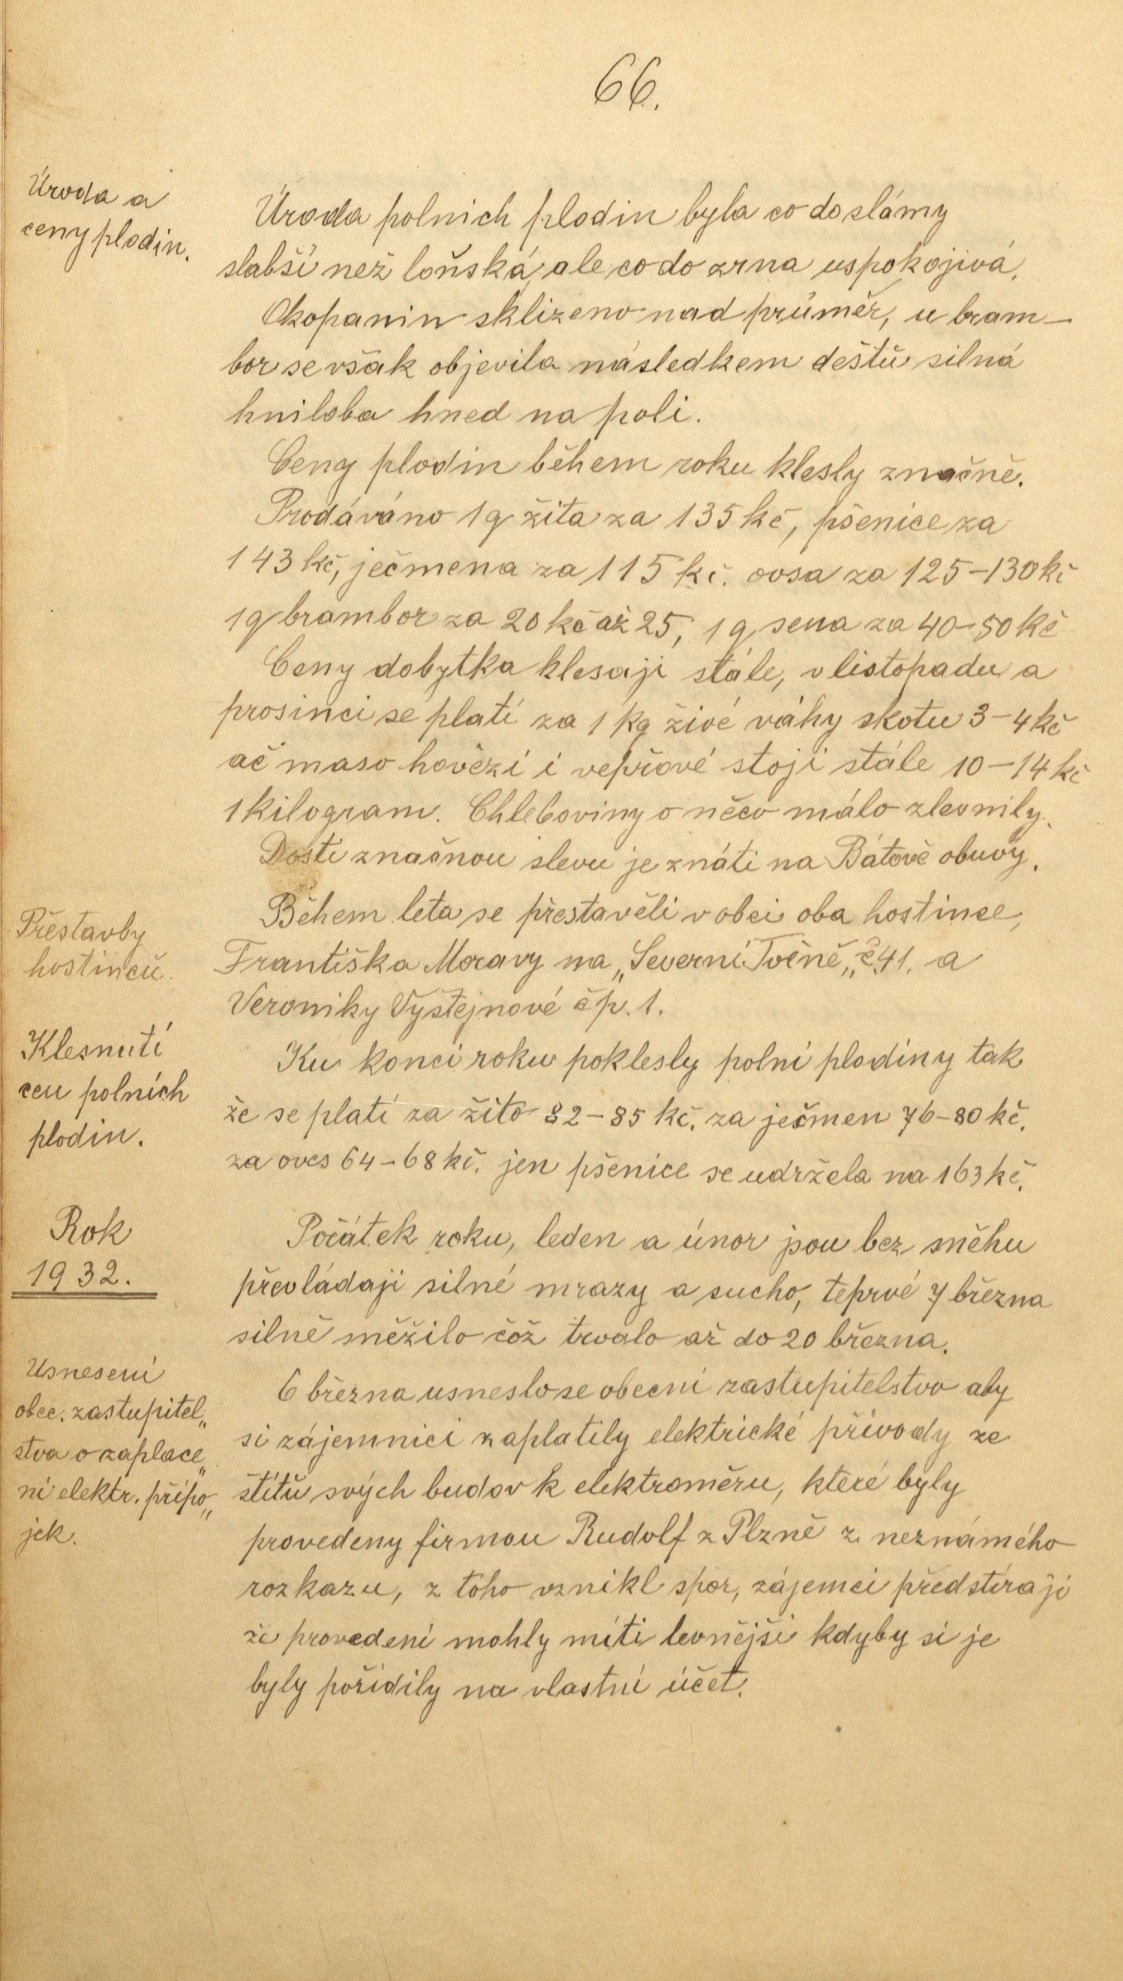 66.
Úroda a
ceny plodin.
Úroda polnich plodin byla co do slámy
slabší než loňská, ale co do zrna uspokojivá.
Okopanin sklizeno nad průměr, u bram-
bor se však objevila následkem deštů silná
hniloba hned na poli.
Ceny plodin během roku klesly značně.
Prodáváno 1q žita za 135 kč, pšenice za
143 kč, ječmena za 115 kč. ovsa za 125-130 kč
1q brambor za 20 kč až 25, 1q sena za 40-50 kč
Ceny dobytka klesaji stále, v listopadu a
prosinci se platí za 1 kg živé váhy skotu 3-4 kč
ač maso hovězí i vepřové stoji stále 10-14 kč
1 kilogram. Chleboviny o něco málo zlevnily.
Dosti značnou slevu je znáti na Bátově obuvy.
Přestavby
hostinců.
Během leta se přestavěli v obci oba hostince,
Františka Moravy na „Severní Točně„ č.41. a
Veroniky Vyštejnové čp. 1.
Klesnutí
cen polních
plodin.
Ku konci roku poklesly polní plodiny tak
že se platí za žito 82-85 kč. za ječmen 76-80 kč.
za oves 64-68 kč. jen pšenice se udržela na 163 kč.
Rok
1932.
Počátek roku, leden a únor jsou bez sněhu
převládaji silné mrazy a sucho, teprvé 7 března
silně sněžilo čož trvalo až do 20 března.
Usneseni
obec. zastupitel„
stva o zaplace„
ní elektr. přípo„
jek.
6 března usneslo se obecní zastupitelstvo aby
si zájemnici zaplatily elektrické přívody ze
štítů svých budov k elektroměru, které byly
provedeny firmou Rudolf z Plzně z neznámého
rozkazu, z toho vznikl spor, zájemci předstíraji
že provedeni mohly míti levnější kdyby si je
byly pořídily na vlastní účet.